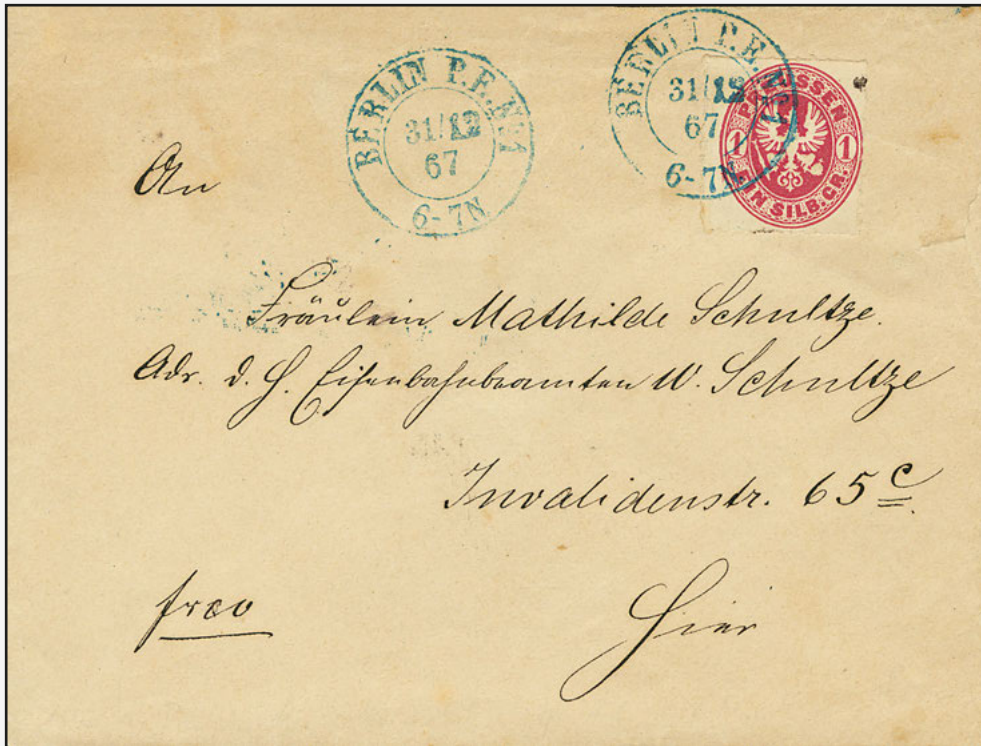 BERLIN P.E. No1
31/12
67
6-7N
BERLIN P.E. No1
31/12
67
6-7N
PREUSSEN
1 1
EIN SILB.GR.
An
Fräulein Mathilde Schultze.
Adr. d. H. Eisenbahnbeamten W. Schultze
Invalidenstr. 65c.
frco
Hier